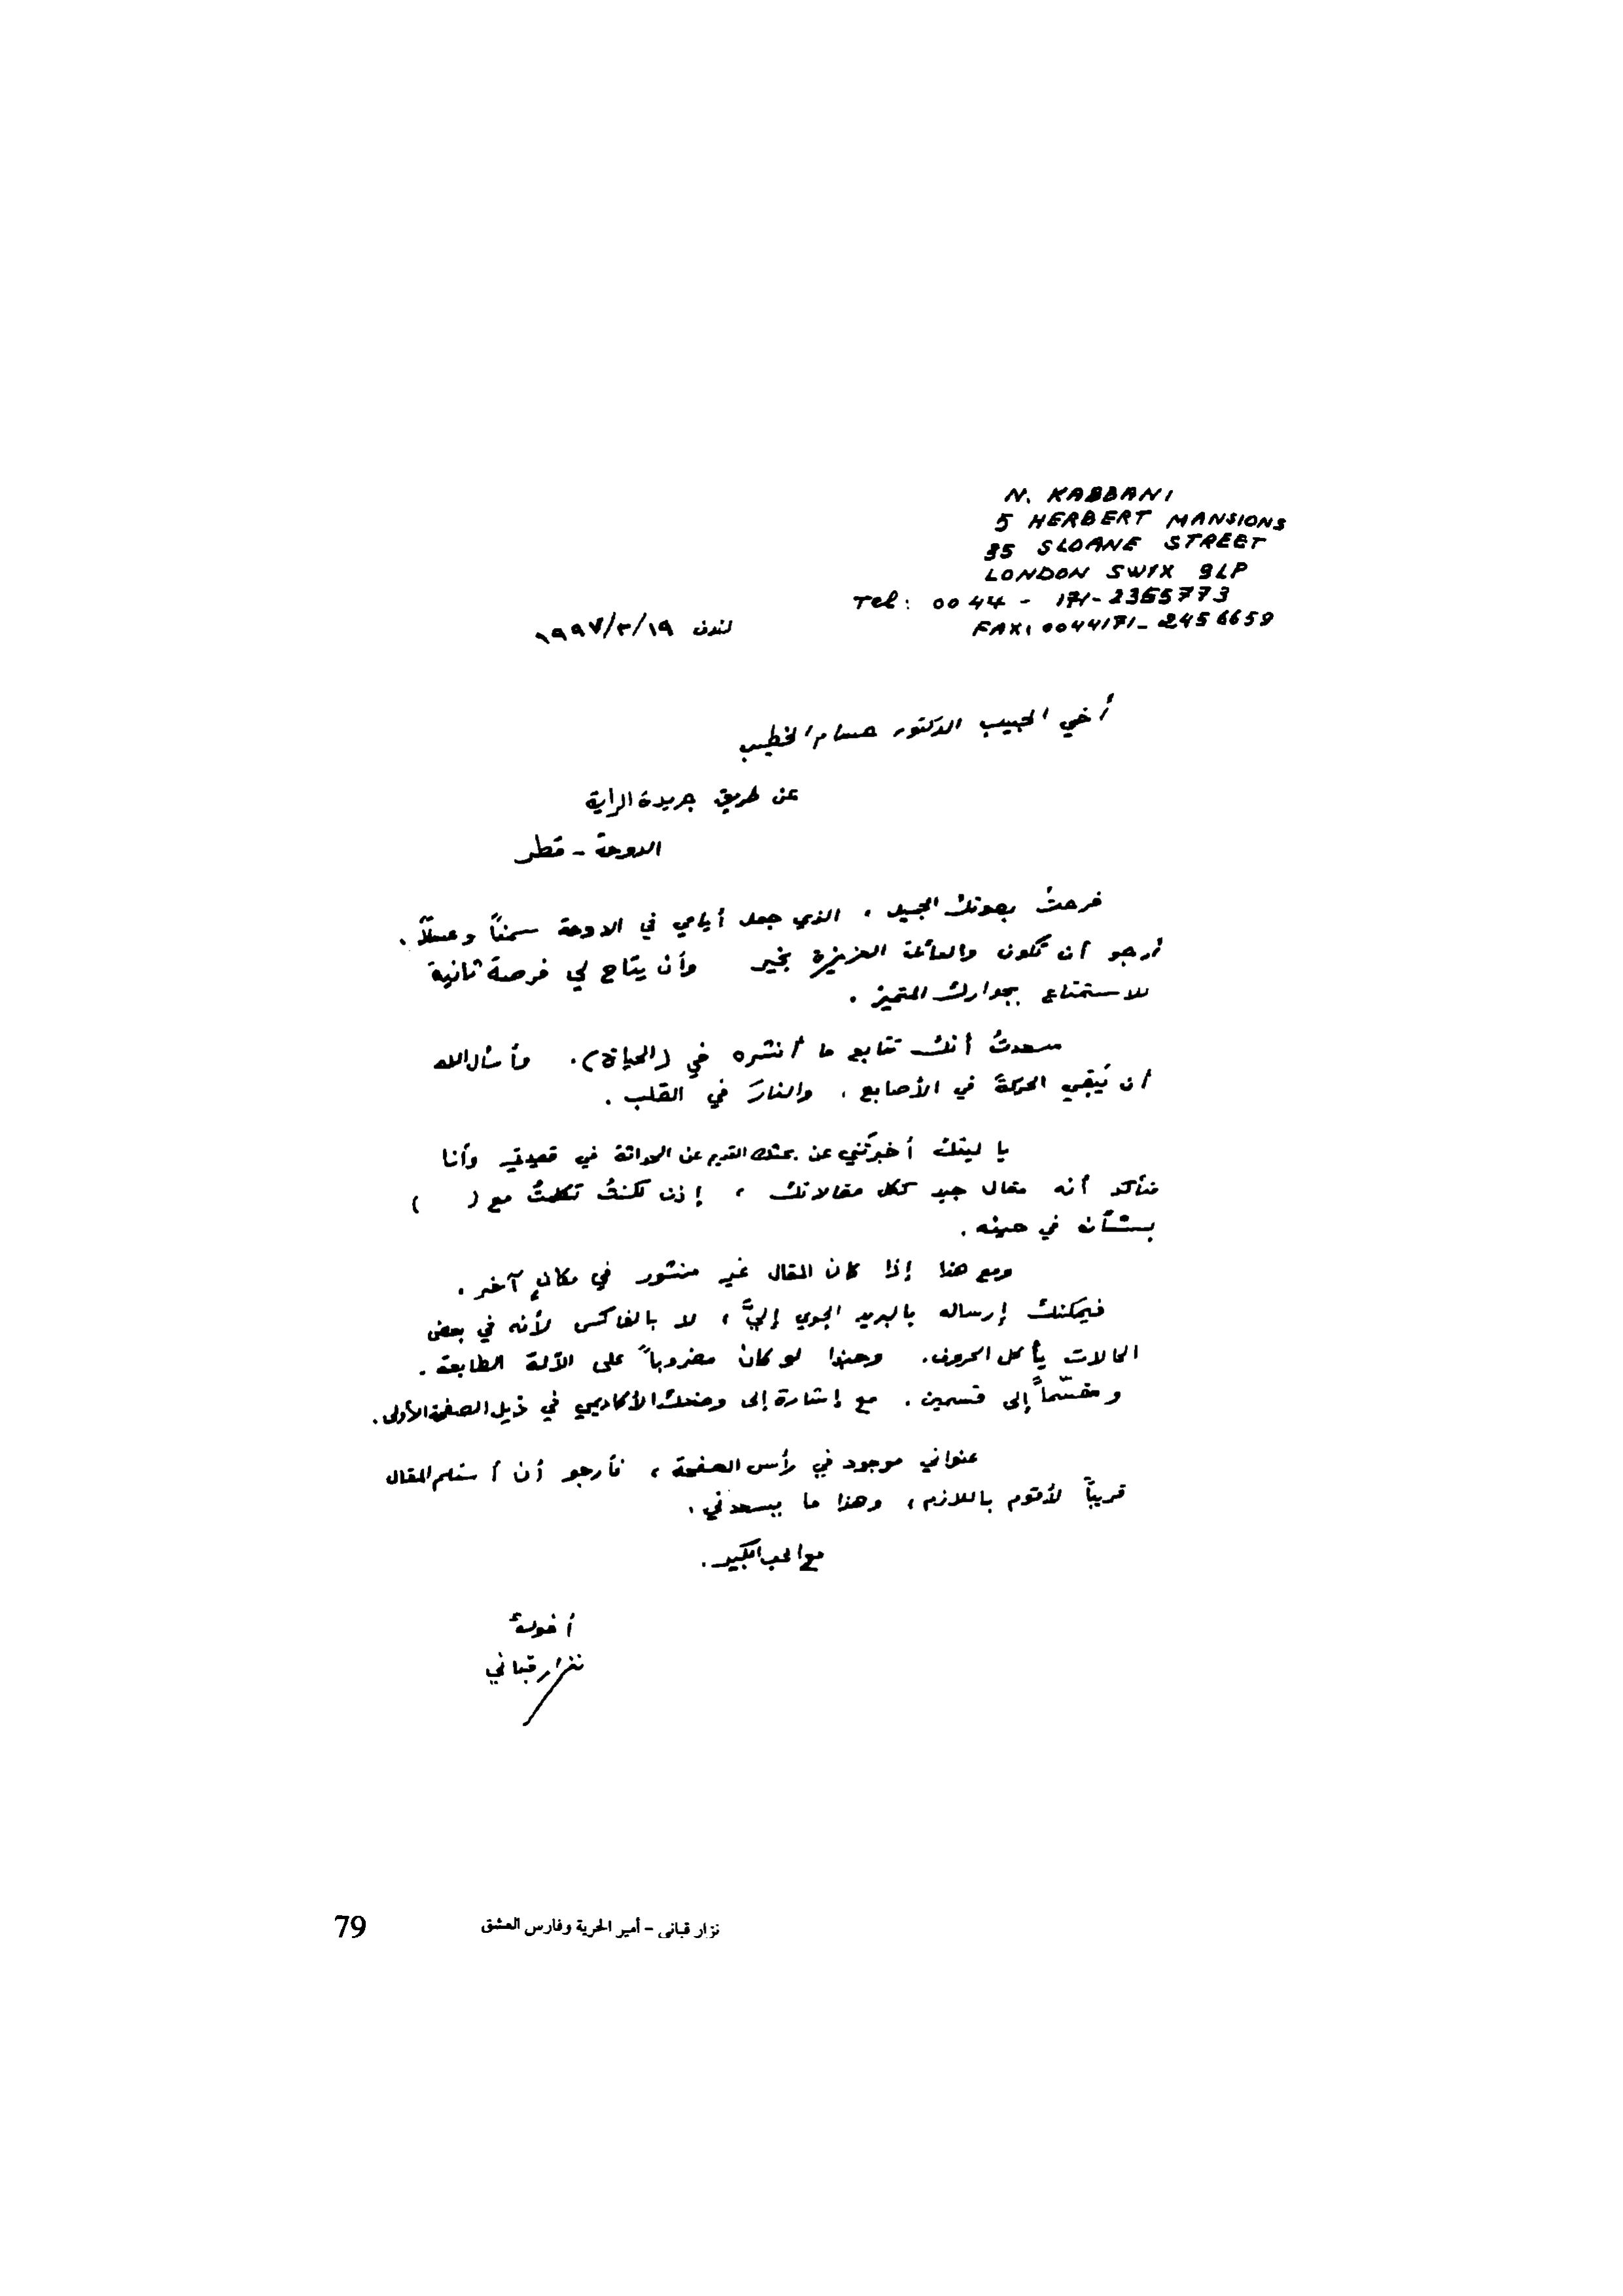 N. KABBANI
5 HERBERT MANSIONS
35 SLOANE STREET
LONDON SW1X 9LP
Tel: 0044 - 171-2355773
FAX: 0044171-2456659
لندن ١٩/٣/١٩٩٧
أخي الحبيب الدكتور حسام الخطيب
عن طريق جريدة الراية
الدوحة - قطر
فرحتُ بصوتك الجميل، الذي جعل أيامي في الدوحة سمناً وعسلاً.
أرجو أن تكون والعائلة العزيزة بخير وأن يتاح لي فرصة ثانية
للاستمتاع بجوارك المتميز.
سعدتُ أنك تتابع ما أنشره في (الحياة). وأسأل الله
أن يُبقي الحركةَ في الأصابع، والنارَ في القلب.
يا ليتك أخبرتَني عن بحثك القديم عن الحداثة في قصيدتي وأنا
متأكد أنه مقال جيد ككل مقالاتك، إذن لكنتُ تكلمتُ مع ( )
بشأن في حينه.
ومع هذا إذا كان المقال غير منشور في مكانٍ آخر.
فيمكنك إرساله بالبريد الجوي إليَّ، لا بالفاكس لأنه في بعض
الحالات يأكل الحروف. وحبذا لو كان مضروباً على الآلة الطابعة.
ومقسّماً إلى قسمين. مع إشارة إلى وضعك الأكاديمي في ذيل الصفحة الأولى.
عنواني موجود في رأس الصفحة، فأرجو أن أستلم المقال
قريباً لأقوم باللازم، وهذا ما يسعدني.
مع الحب الكبير.
أخوك
نزار قباني
نزار قباني - أمير الحرية وفارس العشق
79